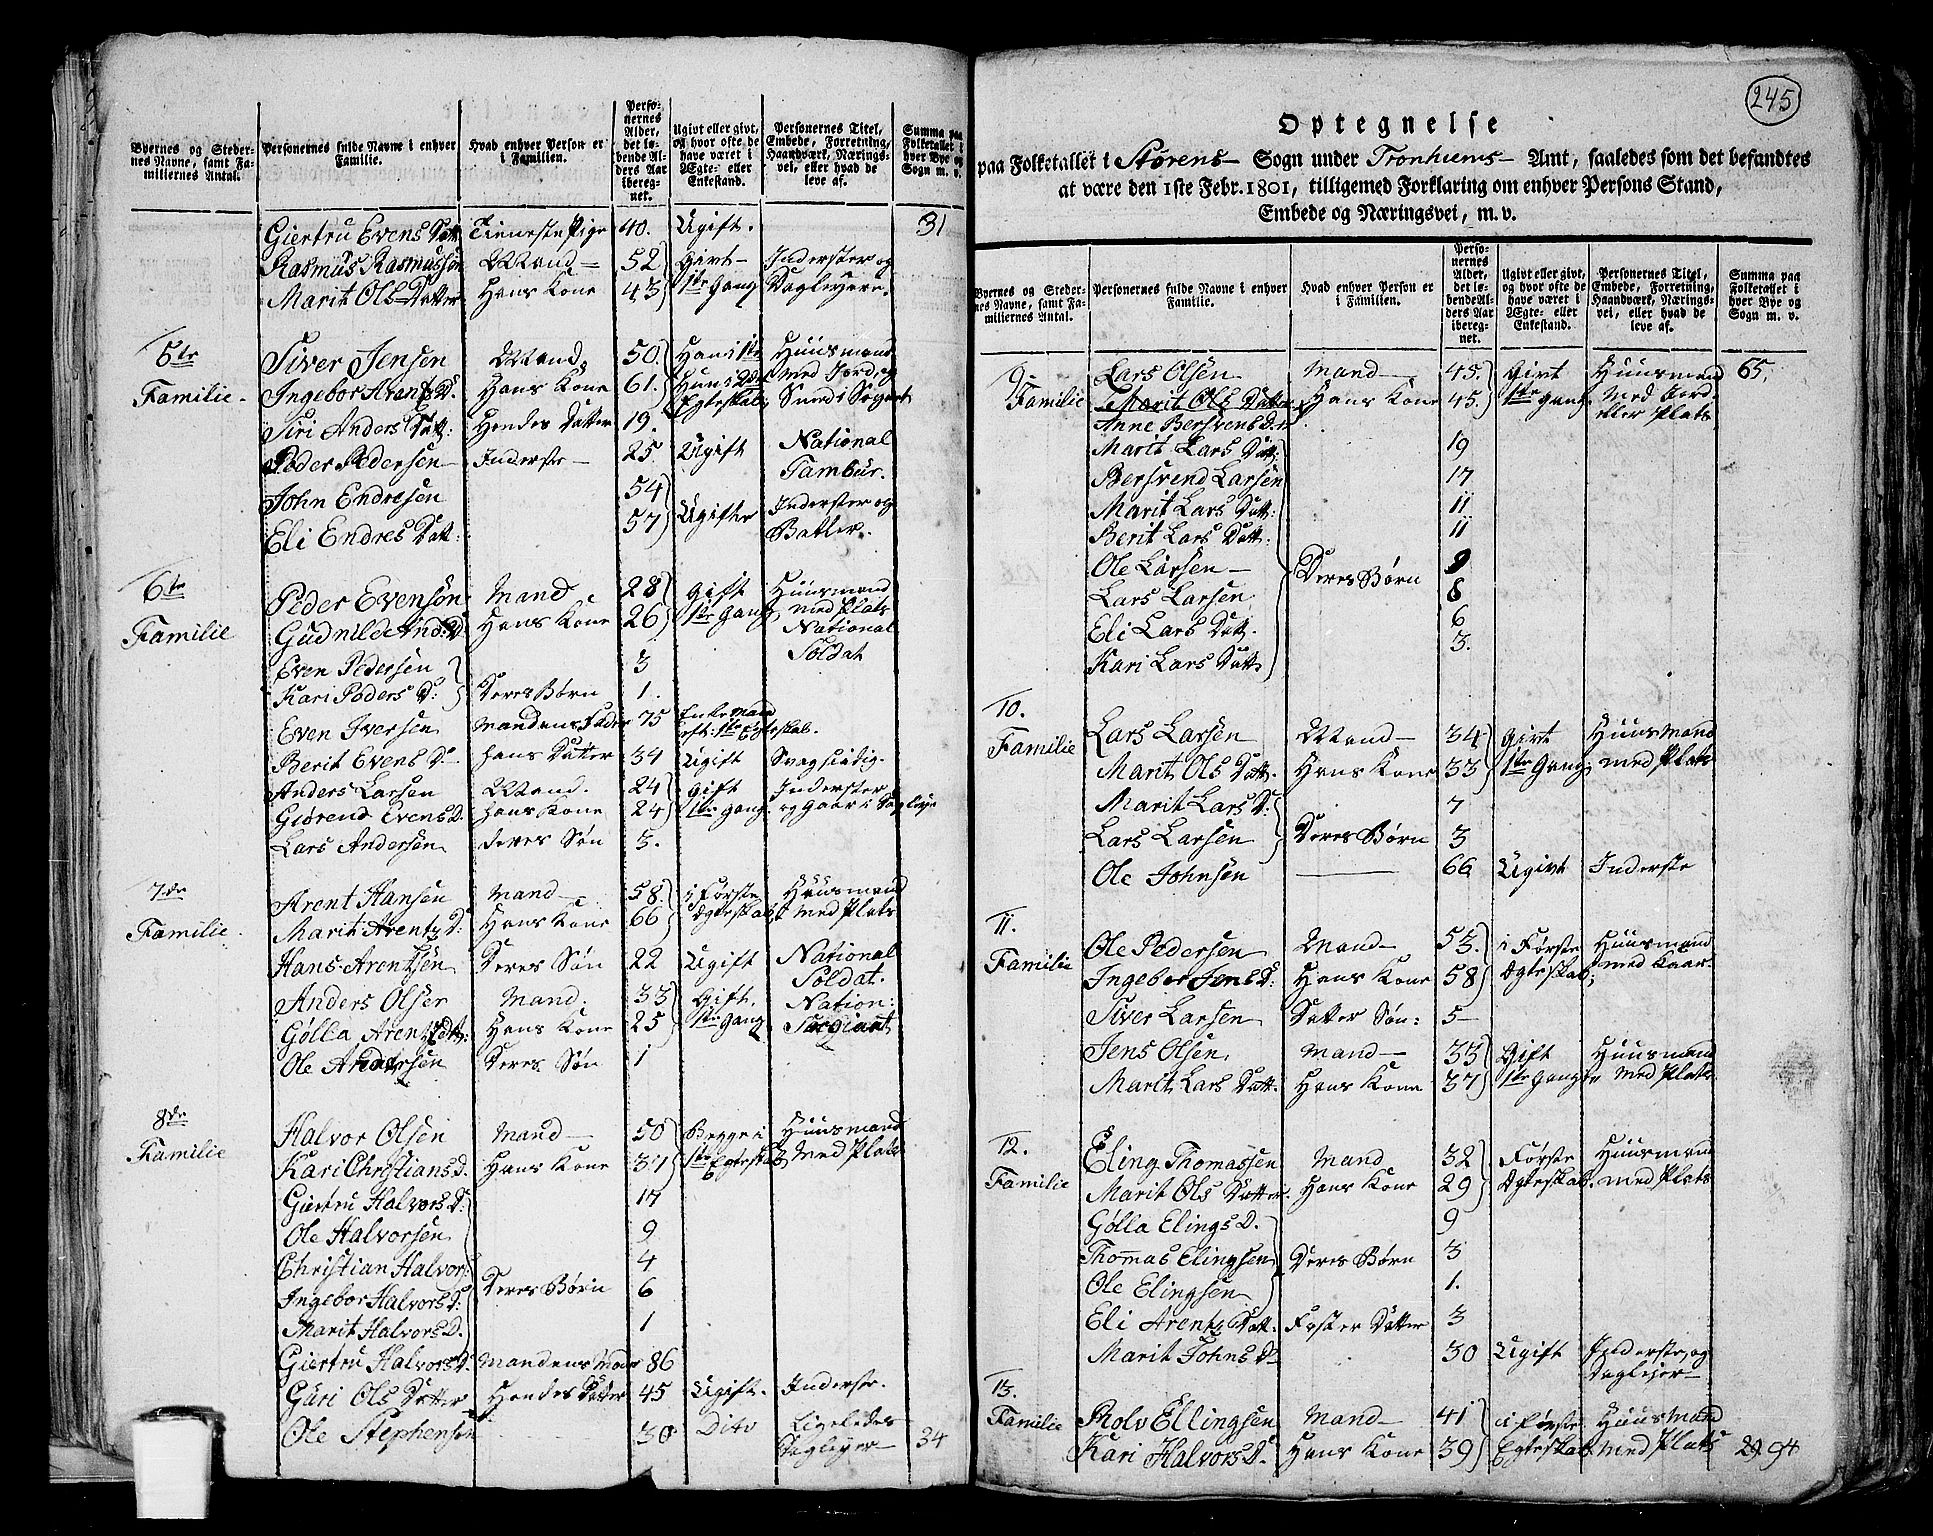 Byernes og Steder- nes Navne, samt Fa- miliernes Antal. | Personernes fulde Navne i enhver Familie. | Hvad enhver Person er i Familien. | Perso- nernes Alder, det lø- bende Al- ders Aar ibereg- net. | Ugivt eller givt, og hvor ofte de have været i Ægte- eller Enkestand. | Personernes Titel, Embede, Forretning, Haandværk, Nærings- vei, eller hvad de leve af. | Summa paa Folketallet i hver Bye og Sogn m. v.
Giertru Evens Datt: Tieneste Pige 40. Ugift. 31
Rasmus Rasmussøn Mand 52 Givt Inderster og
Marit Ols Datter Hans Kone 43 1ste Gang Dagleyere.
5te Siver Jensen Mand. 50 Han i 1ste Huusmand
Familie. Ingebor Arents D. Hans Kone 61. Hun i 2det med Jord, og
Egteskab
Siri Anders Datt: Hendes Datter 19.
Peder Pedersen Inderste 25 Ugift National
Tambur.
John Endresen 54 Inderster og
Eli Endres Datt: 57 Ugifte Betler.
6te Peder Evensøn Mand 28 Gift Huusmand
Familie Gudnilde And: D: Hans Kone 26 1ste Gang med Plats
National
Soldat
Even Pedersen 3
Kari Peders D: Deres Børn 1.
Even Iversen Mandens Fader 75 Enkemand
eft: 1ste Egteskab.
Berit Evens D hans Datter 34 Ugift Svagheidig.
Anders Larsen Mand. 24 Gift Inderster
Giørend Evens D. hans Kone 24 1ste Gang
Lars Andersen deres Søn 5.
7de Arent Hansen Mand 58. i Første Huusmand
Familie. Marit Arentz D: Hans Kone 66 Ægteskab med Plats
Hans Arentsen Deres Søn 22 Ugift National
Soldat.
Anders Olsen Mand. 33 Gift. Nation:
Gølla Arentz Dt: Hans Kone 25 1ste Gang Sergiant
Ole Andersen Deres Søn 1
8de Halvor Olsen Mand 50 Begge i Huusmand
Familie Kari Christians D. Hans Kone 37 1ste Egteskab med Plats
Giertru Halvors D: 17
Ole Halvorsen 9
Christian Halvors: 4
Ingebor Halvors D: Deres Børn 6
Marit Halvors D. 1
Giertru Halvors D. Mandens Moer 86
Guri Ols Datter Hendes Datter 45 Ugift. Inderste.
Ole Stephensen 30 Dito Ligeledes
Dagleyer 34
245
Optegnelse
paa Folketallet i Størens Sogn under Tronhiems Amt, saaledes som det befandtes
at være den 1ste Febr. 1801, tilligemed Forklaring om enhver Persons Stand,
Embede og Næringsvei, m. v.
Byernes og Steder- nes Navne, samt Fa- miliernes Antal. | Personernes fulde Navne i enhver Familie. | Hvad enhver Person er i Familien. | Perso- nernes Alder, det lø- bende Al- ders Aar ibereg- net. | Ugivt eller givt, og hvor ofte de have været i Ægte- eller Enkestand. | Personernes Titel, Embede, Forretning, Haandværk, Nærings- vei, eller hvad de leve af. | Summa paa Folketallet i hver Bye og Sogn m. v.
9. Lars Olsen Mand 45. Givt Huusmand 65.
Familie Marit Ols Datter Hans Kone 45. 1ste Gang med Jord
Anne Bersvens D. eller Plats
Marit Lars Datt: 19
Bersvend Larsen 17
Marit Lars Datt: 11
Berit Lars Datt: 11
Ole Larsen 9
Deres Børn
Lars Larsen 8
Eli Lars Datt. 6
Kari Lars Datt 3.
10. Lars Larsen Mand 34 Givt Huusmand
Familie Marit Ols Datt. Hans Kone 33 1ste Gang med Plats
Marit Lars D: 7
Lars Larsen Deres Børn 3
Ole Johnsen 66 Ugivt Inderste
11. Ole Pedersen Mand 55. i Første Huusmand
Familie Ingebor Jens D: Hans Kone 58 Ægteskab;
Siver Larsen Datter Søn: 5
Jens Olsen Mand 35 Gift Huusmand
Marit Lars Datt: Hans Kone 37 1ste Gang med Plats
12. Eling Thomassen Mand 32 Første Huusmand
Familie Marit Ols Datter Hans Kone 29 Ægteskab. med Plats
Gølla Elings D. 9
Thomas Elingsen Deres Børn 3
Ole Elingsen 1.
Eli Arentz Datt. Foster Datter 3
Marit Johns D 30 Ugift Inderste, og
Dagleyer
13. Rolv Ellingsen Mand 41 i Første Huusmand
Familie Kari Halvors D. Hans Kone 39 Egteskab med Plats 29. 94